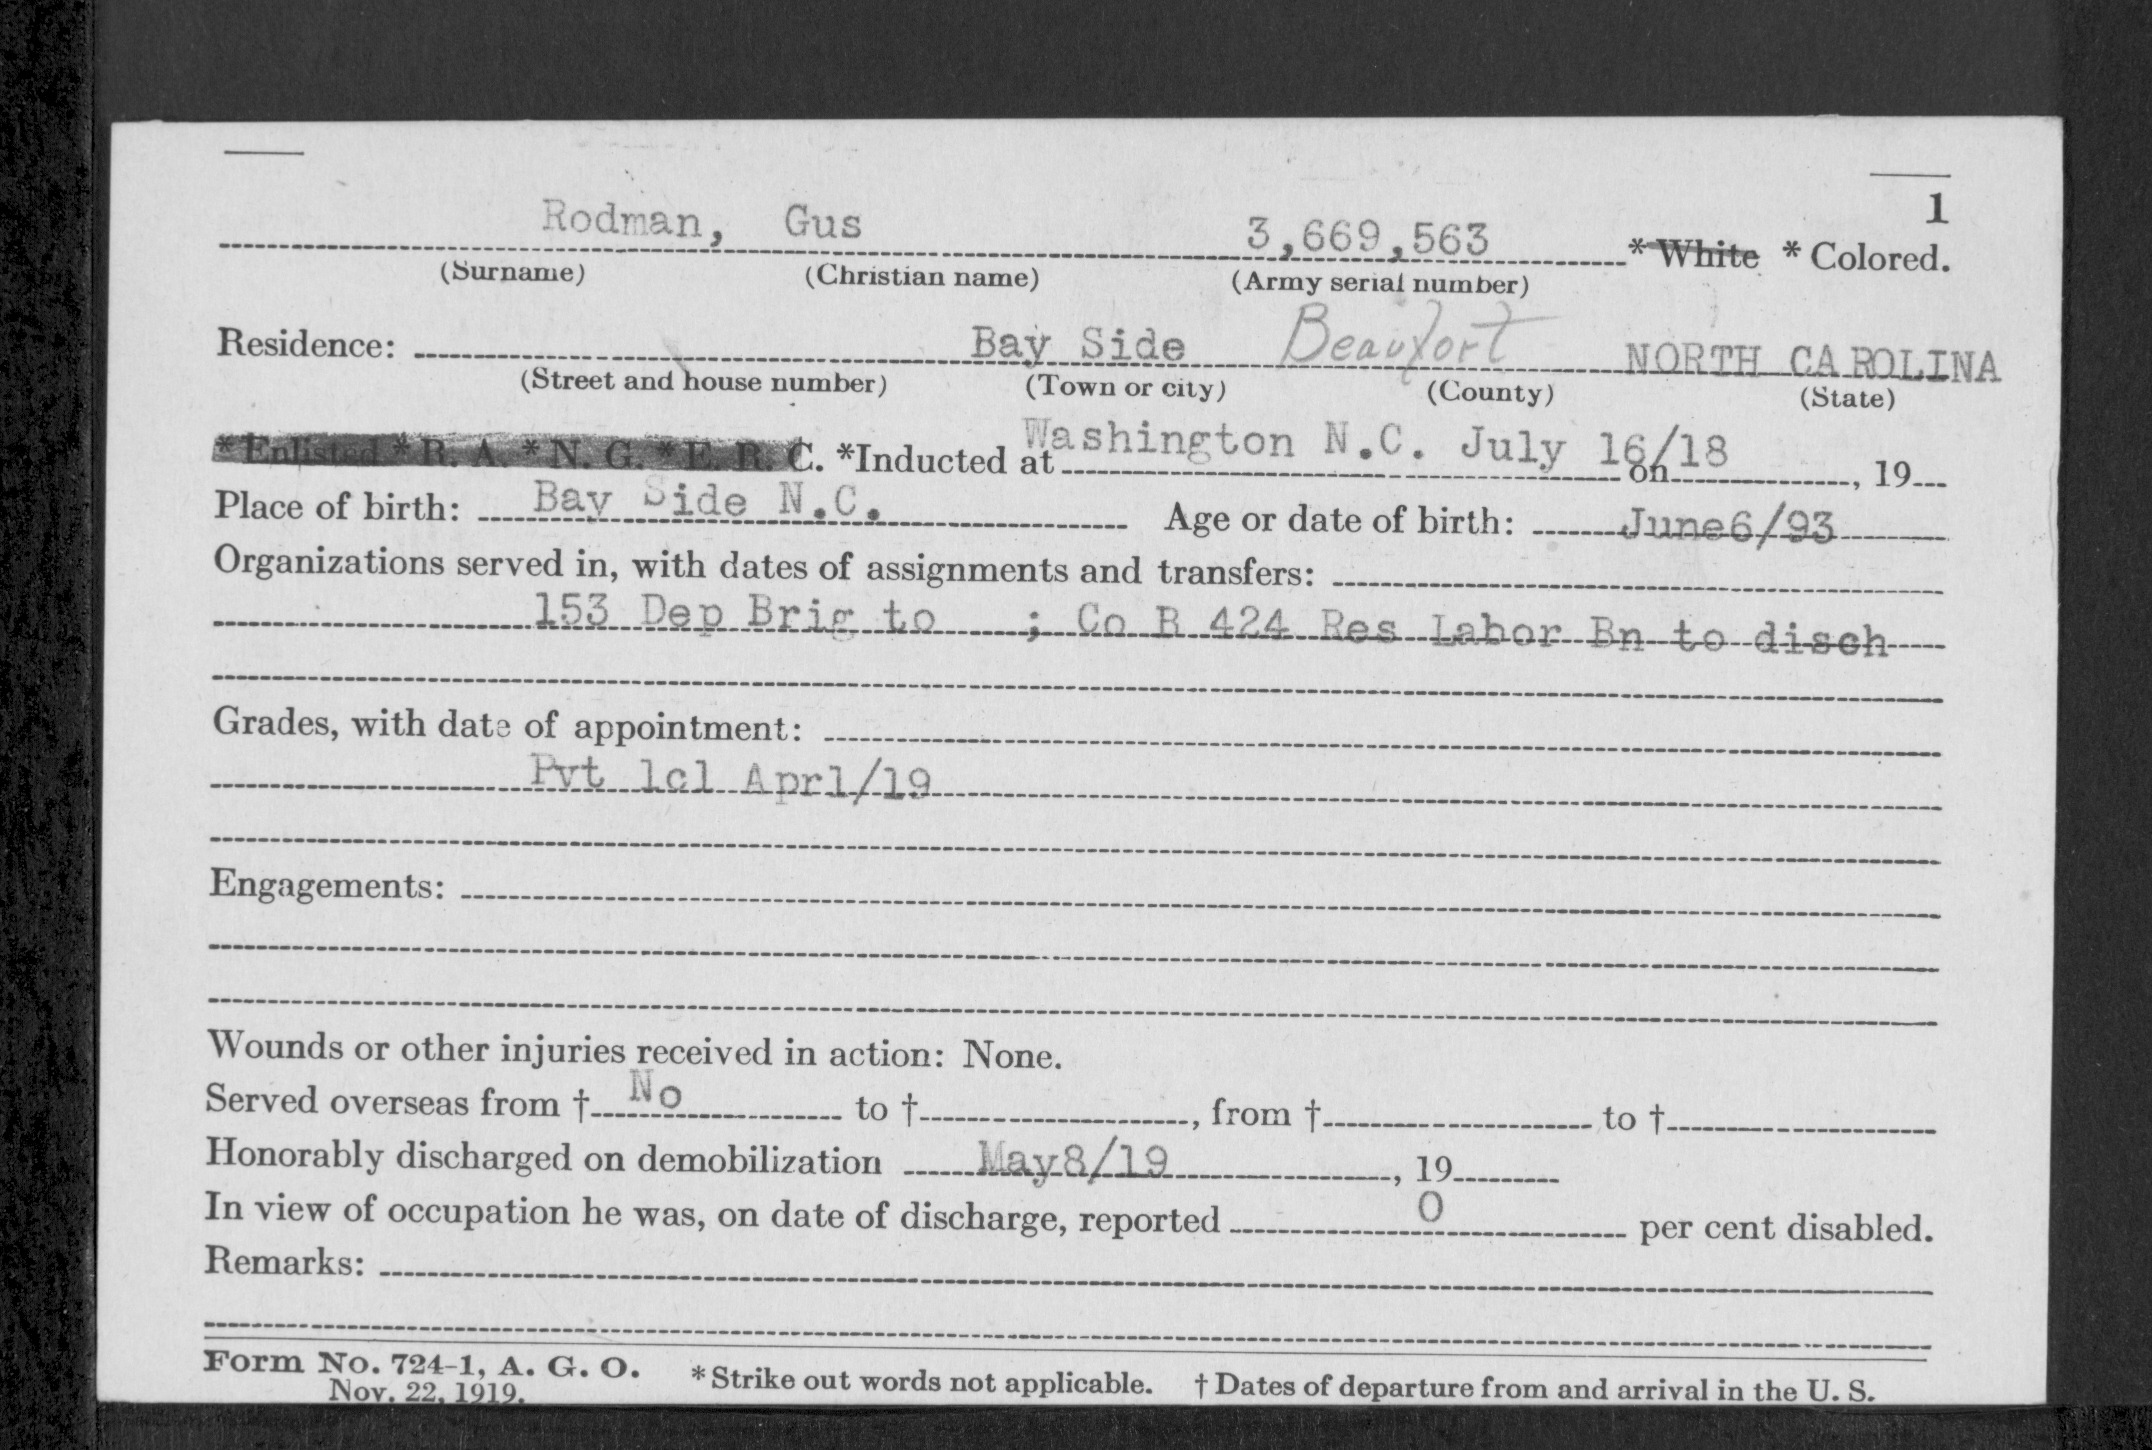 1
Rodman, Gus 3,669,563 *White *Colored.
(Surname) (Christian name) (Army serial number)
Residence: Bay Side Beaufort NORTH CAROLINA
(Street and house number) (Town or city) (County) (State)
*Enlisted *R. A. *N. G. *E. R. C. *Inducted at Washington N.C. July 16/18 on , 19
Place of birth: Bay Side N.C. Age or date of birth: June6/93
Organizations served in, with dates of assignments and transfers:
153 Dep Brig to ; Co B 424 Res Labor Bn to disch
Grades, with date of appointment:
Pvt 1cl Apr1/19
Engagements:
Wounds or other injuries received in action: None.
Served overseas from † No to † , from † to †
Honorably discharged on demobilization May8/19 , 19
In view of occupation he was, on date of discharge, reported 0 per cent disabled.
Remarks:
Form No. 724-1, A. G. O. *Strike out words not applicable. † Dates of departure from and arrival in the U. S.
Nov. 22, 1919.